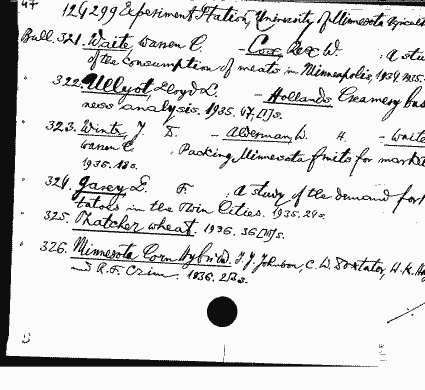 47 124299 Experiment Station, University of Minnesota Agricul
Bull. 321. Waite, Warren C. - Cox, Rex W. A stu
of the consumption of meats in Minneapolis, 1934-1935.
322. Ullyot, Lloyd L. - Hollands, Creamery bus
ness analysis. 1935. 47,[1]s.
323. Wintz, J. S. - Alderman, W. H. - Waite
Warren C. Packing Minnesota fruits for market
1935. 18s.
324. Garey, L. F. A study of the demand for
tatoes in the Twin Cities. 1935. 24s.
325. Thatcher wheat. 1936. 36[1]s.
326. Minnesota Corn Hybrids. I. J. Johnson, C. W. Doxtator, H. K. Ha
and R. F. Crim. 1936. 28s.